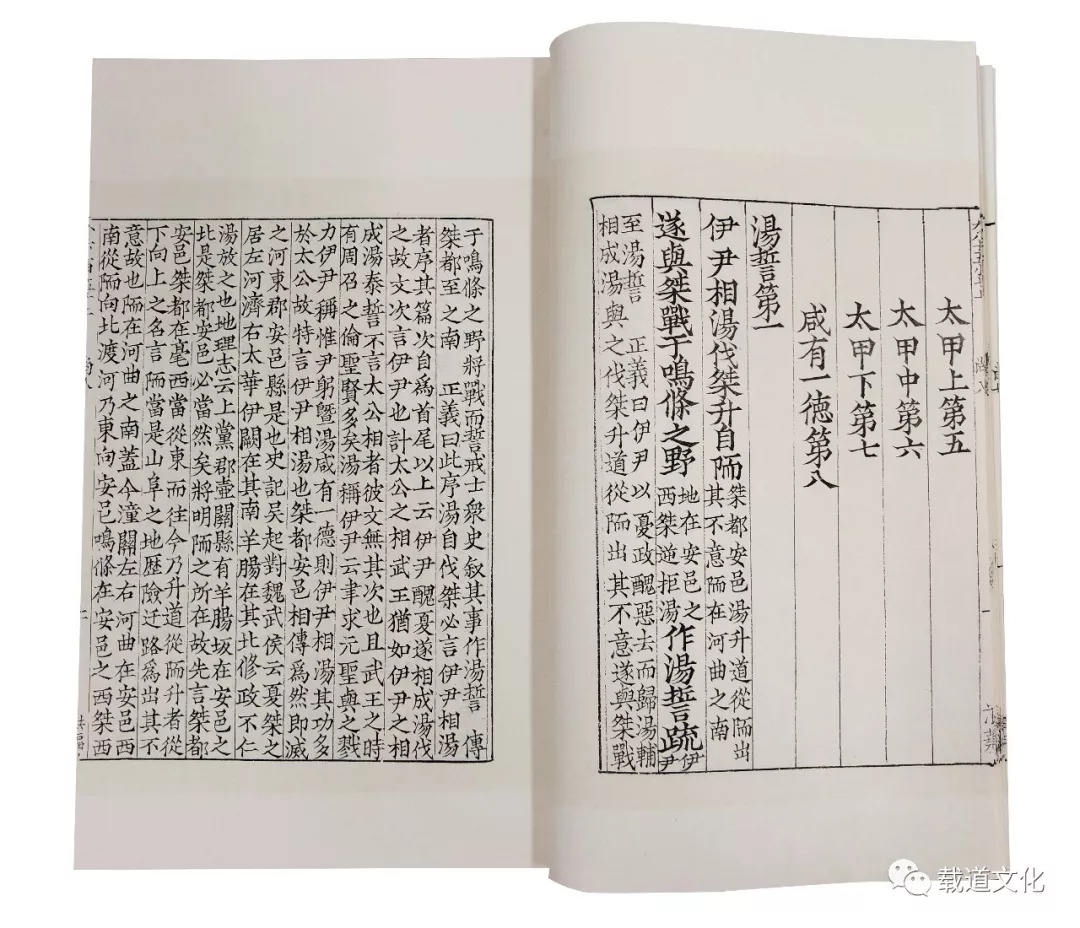 太甲上第五
太甲中第六
太甲下第七
咸有一德第八
湯誓第一
伊尹相湯伐桀升自陑
桀都安邑湯升道從陑出
其不意陑在河曲之南
遂與桀戰于鳴條之野
地在安邑之
西桀逆拒湯
作湯誓疏
伊尹
至湯誓 正義曰伊尹以夏政醜惡去而歸湯輔
相成湯與之伐桀升道從陑出其不意遂與桀戰
于鳴條之野將戰而誓戒士衆史叙其事作湯誓 傳
桀都至之南 正義曰此序湯自伐桀必言伊尹相湯
者序其篇次自爲首尾以上云伊尹醜夏遂相成湯伐
之故文次言伊尹也計太公之相武王猶如伊尹之相
成湯泰誓不言太公相者彼文無其次也且武王之時
有周召之倫聖賢多矣湯稱伊尹云聿求元聖與之戮
力伊尹稱惟尹躬暨湯咸有一德則伊尹相湯其功多
於太公故特言伊尹相湯也桀都安邑相傳爲然即滅
之河東郡安邑縣是也史記吴起對魏武侯云夏桀之
居左河濟右太華伊闕在其南羊腸在其北修政不仁
湯放之也地理志云上黨郡壺關縣有羊腸坂在安邑之
北是桀都安邑必當然矣將明陑之所在故先言桀都
安邑桀都在亳西當從東而往今乃升道從陑升者從
下向上之名言陑當是山阜之地歷險迂路爲出其不
意故也陑在河曲之南蓋今潼關左右河曲在安邑西
南從陑向北渡河乃東向安邑鳴條在安邑之西桀西
载道文化